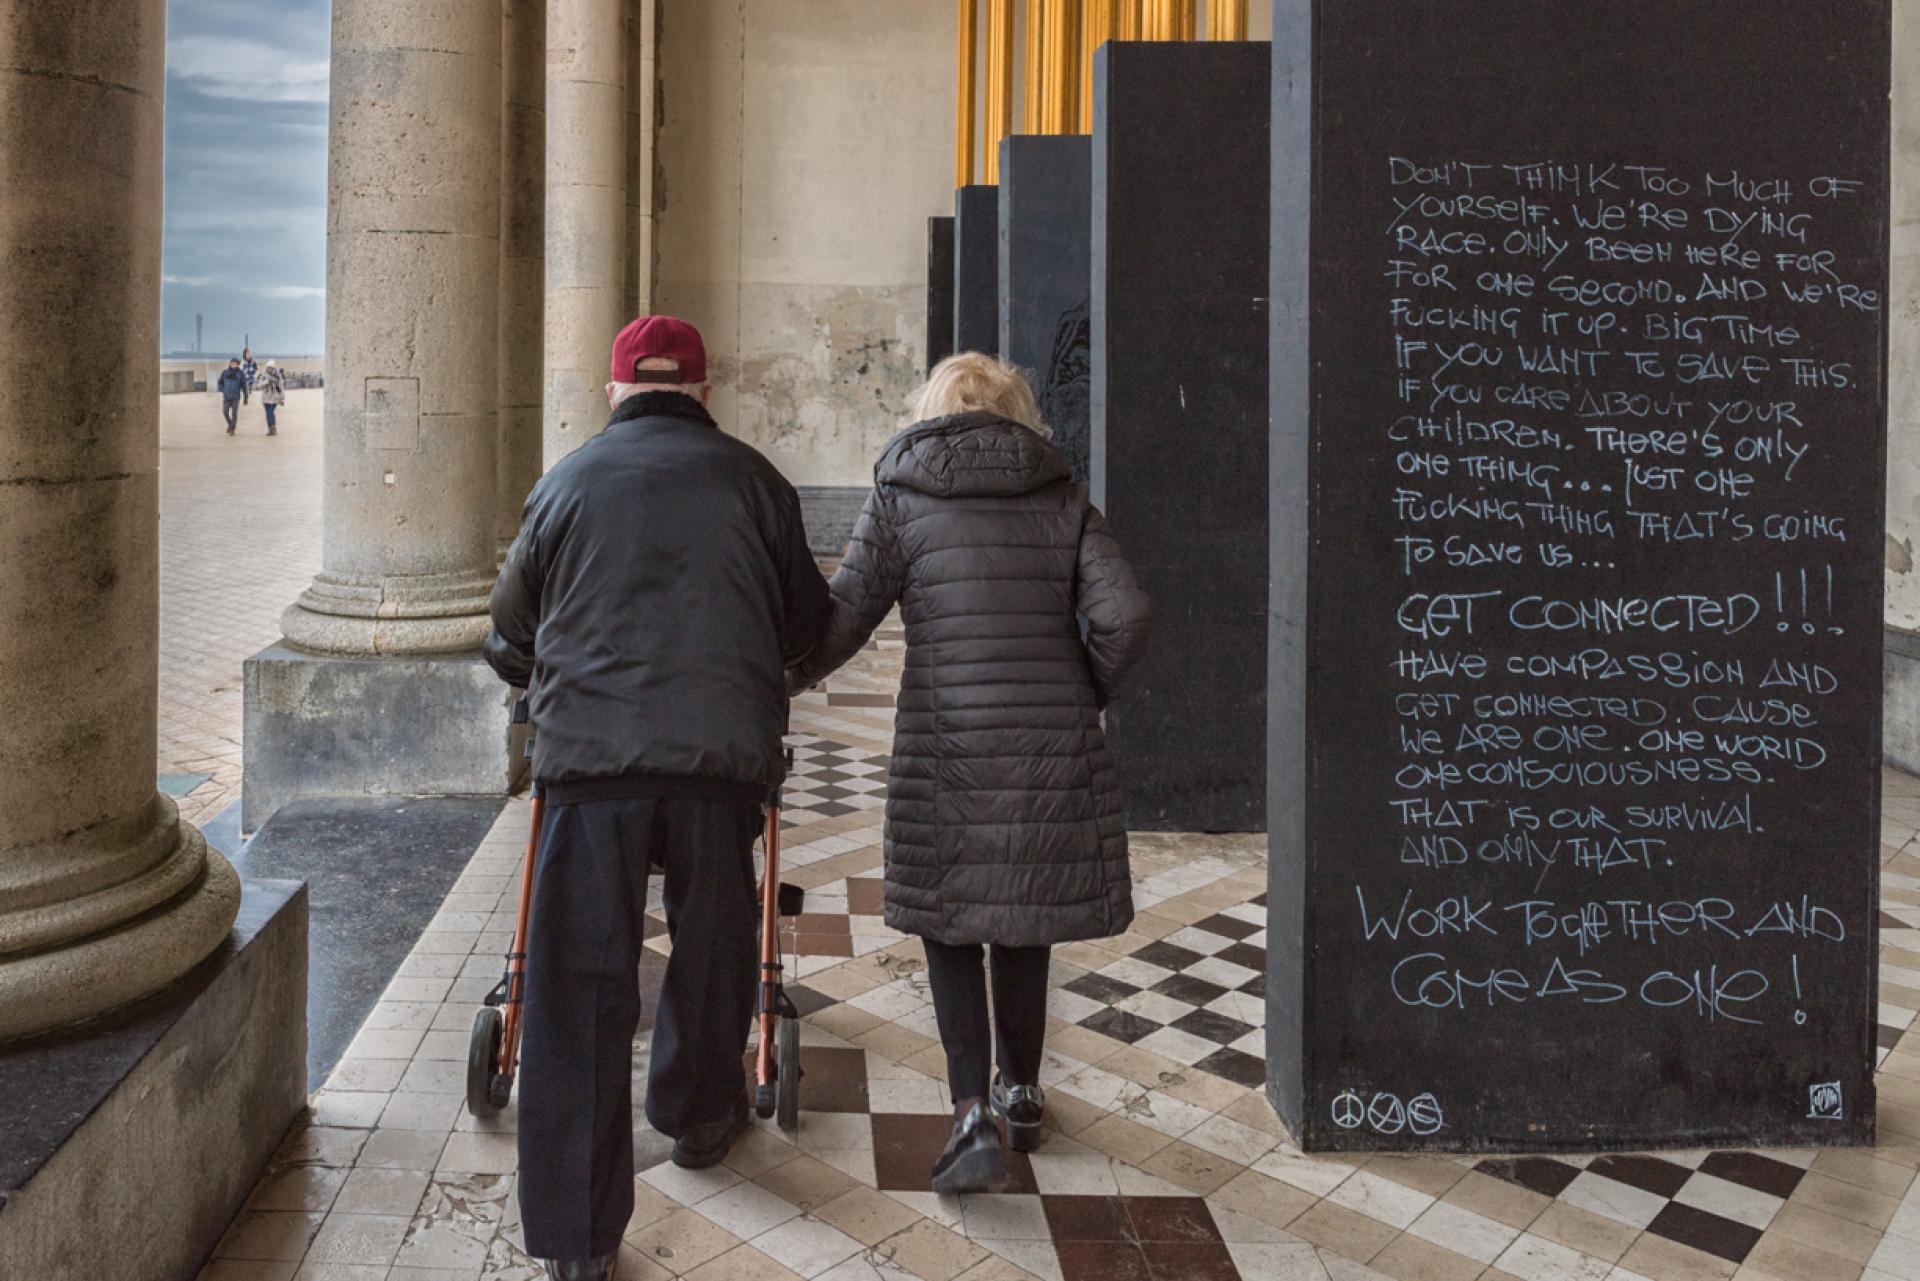 DON'T THINK TOO MUCH OF
YOURSELF. WE'RE DYING
RACE. ONLY BEEN HERE FOR
FOR ONE SECOND. AND WE'RE
FUCKING IT UP. BIG TIME
IF YOU WANT TO SAVE THIS.
IF YOU CARE ABOUT YOUR
CHILDREN. THERE'S ONLY
ONE THING... JUST ONE
FUCKING THING THAT'S GOING
TO SAVE US...
GET CONNECTED!!!
HAVE COMPASSION AND
GET CONNECTED. CAUSE
WE ARE ONE. ONE WORLD
ONE CONSCIOUSNESS.
THAT IS OUR SURVIVAL.
AND ONLY THAT.
WORK TOGETHER AND
COME AS ONE!